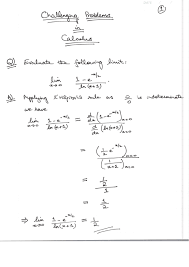 1
Challenging Problems
in
Calculus
Q) Evaluate the following limit:
lim x→0 (1 - e^(-x/2)) / ln(x+1)
A) Applying L'Hôpital's rule as 0/0 is indeterminate
we have
lim x→0 (1 - e^(-x/2)) / ln(x+1) = d/dx (1 - e^(-x/2)) |x=0 / d/dx (ln(x+1)) |x=0
= (1/2 e^(-x/2)) x=0 / (1/(x+1)) x=0
= 1/2 / 1
= 1/2
⇒ lim x→0 (1 - e^(-x/2)) / ln(x+1) = 1/2